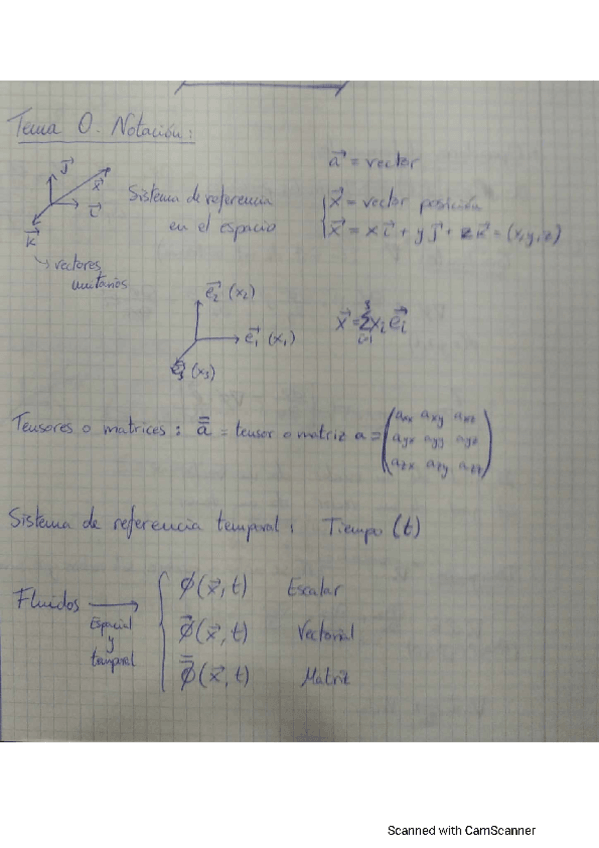 Tema 0. Notación:
a⃗ = vector
j⃗
x⃗
i⃗
k⃗
Sistema de referencia
en el espacio
x⃗ = vector posición
x⃗ = x i⃗ + y j⃗ + z k⃗ = (x, y, z)
↳ vectores
unitarios
e₂⃗ (x₂)
e₁⃗ (x₁)
e₃⃗ (x₃)
x⃗ = Σᵢ₌₁³ xᵢ eᵢ⃗
Tensores o matrices : a̿ = tensor o matriz a = (aₓₓ aₓy aₓz
ayₓ ayy ayz
azₓ azy azz)
Sistema de referencia temporal : Tiempo (t)
Fluidos →
Espacial
y
temporal
ϕ(x⃗, t) Escalar
ϕ⃗(x⃗, t) Vectorial
ϕ̿(x⃗, t) Matriz
Scanned with CamScanner